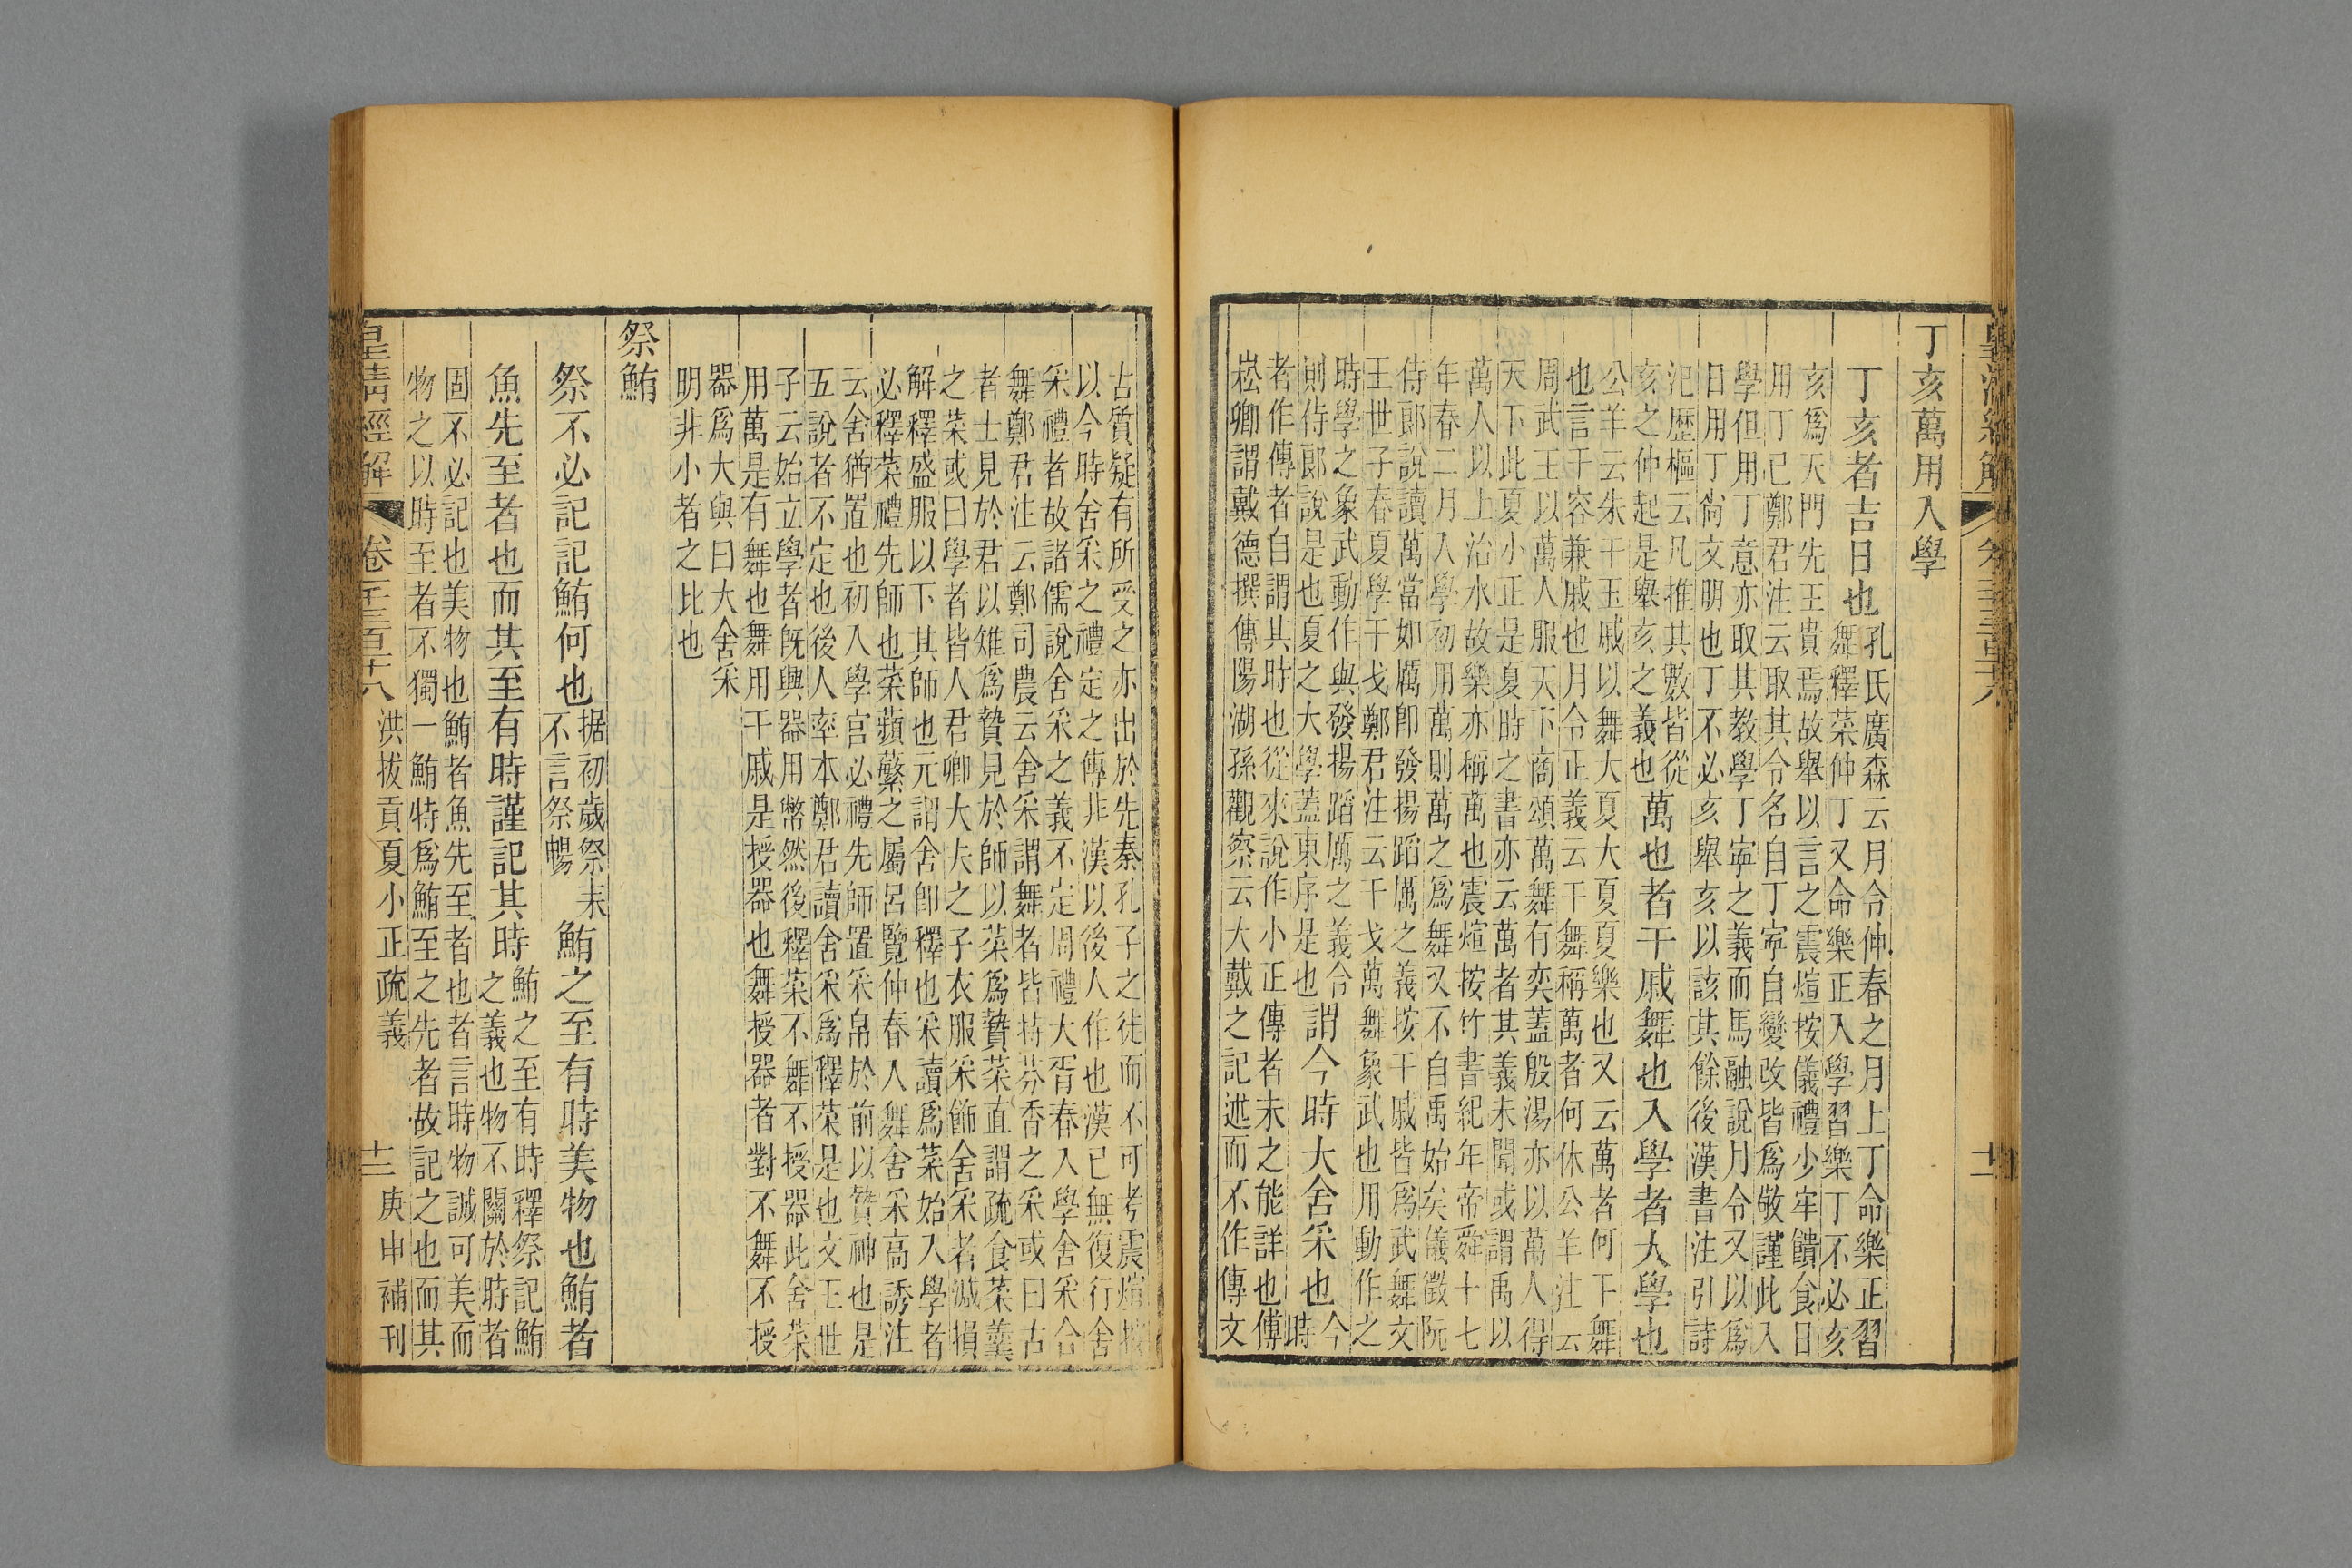 丁亥萬用入學
丁亥者吉日也
孔氏廣森云月令仲春之月上丁命樂正習
舞釋菜仲丁又命樂正入學習樂丁不必亥
亥爲天門先王貴焉故舉以言之震煊按儀禮少牢饋食日
用丁己鄭君注云取其令名自丁寧自變改皆爲敬謹此入
學但用丁意亦取其教學丁寧之義而馬融說月令又以爲
日用丁尚文明也丁不必亥舉亥以該其餘後漢書注引詩
汜歷樞云凡推其數皆從
亥之仲起是舉亥之義也
萬也者干戚舞也入學者大學也
公羊云朱干玉戚以舞大夏大夏夏樂也又云萬者何干舞
也言干容兼戚也月令正義云干舞稱萬者何休公羊注云
周武王以萬人服天下商頌萬舞有奕蓋殷湯亦以萬人得
天下此夏小正是夏時之書亦云萬者其義未聞或謂禹以
萬人以上治水故樂亦稱萬也震煊按竹書紀年帝舜十七
年春二月入學初用萬則萬之爲舞又不自禹始矣儀徵阮
侍郎說讀萬當如厲卽發揚蹈厲之義按干戚皆爲武舞文
王世子春夏學干戈鄭君注云干戈萬舞象武也用動作之
時學之象武動作與發揚蹈厲之義合
則侍郎說是也夏之大學蓋東序是也
謂今時大舍采也
今
時
者作傳者自謂其時也從來說作小正傳者未之能詳也傅
崧卿謂戴德撰傳陽湖孫觀察云大戴之記述而不作傳文
古質疑有所受之亦出於先秦孔子之徒而不可考震煊按
以今時舍采之禮定之傳非漢以後人作也漢已無復行舍
采禮者故諸儒說舍采之義不定周禮大胥春入學舍采合
舞鄭君注云鄭司農云舍采謂舞者皆持芬香之采或曰古
者士見於君以雉爲贄見於師以菜爲贄菜直謂疏食菜羹
之菜或曰學者皆人君卿大夫之子衣服采飾舍采者減損
解釋盛服以下其師也元謂舍卽釋也采讀爲菜始入學者
必釋菜禮先師也菜蘋蘩之屬呂覽仲春入舞舍采高誘注
云舍猶置也初入學官必禮先師置采帛於前以贄神也是
五說者不定也後人率本鄭君讀舍采爲釋菜是也文王世
子云始立學者旣興器用幣然後釋菜不舞不授器此舍菜
用萬是有舞也舞用干戚是授器也舞授器者對不舞不授
器爲大與曰大舍采
明非小者之比也
祭鮪
祭不必記記鮪何也
据初歲祭耒
不言祭暢
鮪之至有時美物也鮪者
魚先至者也而其至有時謹記其時
鮪之至有時釋祭記鮪
之義也物不關於時者
固不必記也美物也鮪者魚先至者也者言時物誠可美而
物之以時至者不獨一鮪特爲鮪至之先者故記之也而其
皇清經解 卷千三百十八 洪拔貢夏小正疏義 十二 庚申補刊